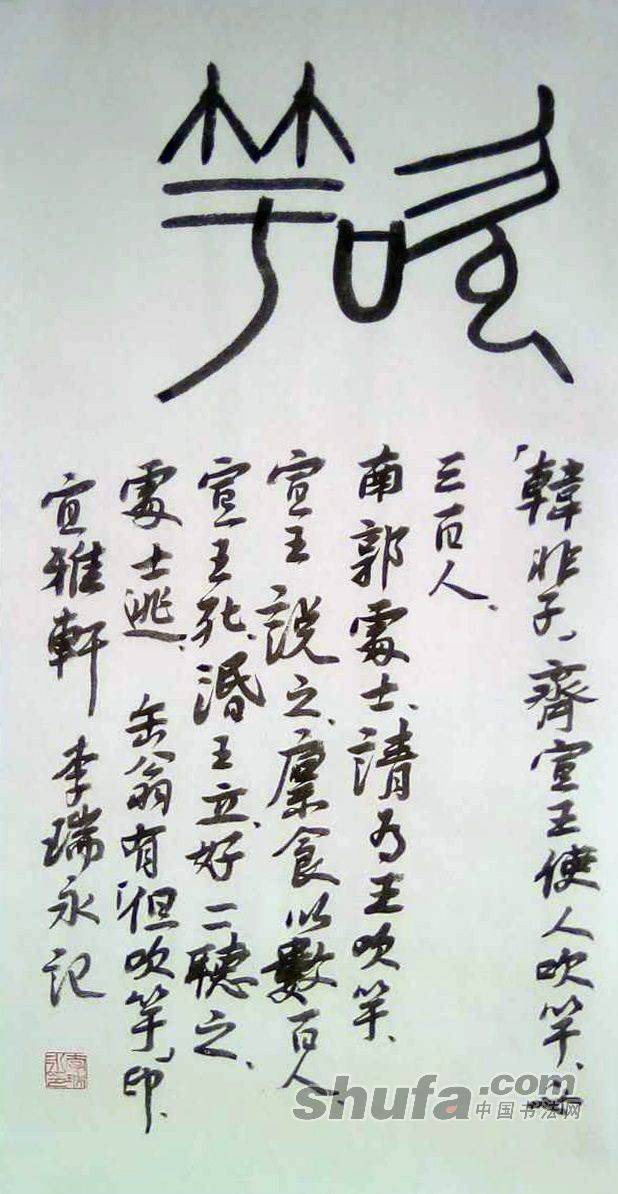 吹竽
「韓非子」齊宣王使人吹竽、必
三百人、
南郭處士、請为王吹竽、
宣王說之、廩食以數百人、
宣王死、湣王立、好一一聽之、
處士逃、缶翁有「但吹竽」印、
宣雅軒 李瑞永記
shufa.com
中国书法网